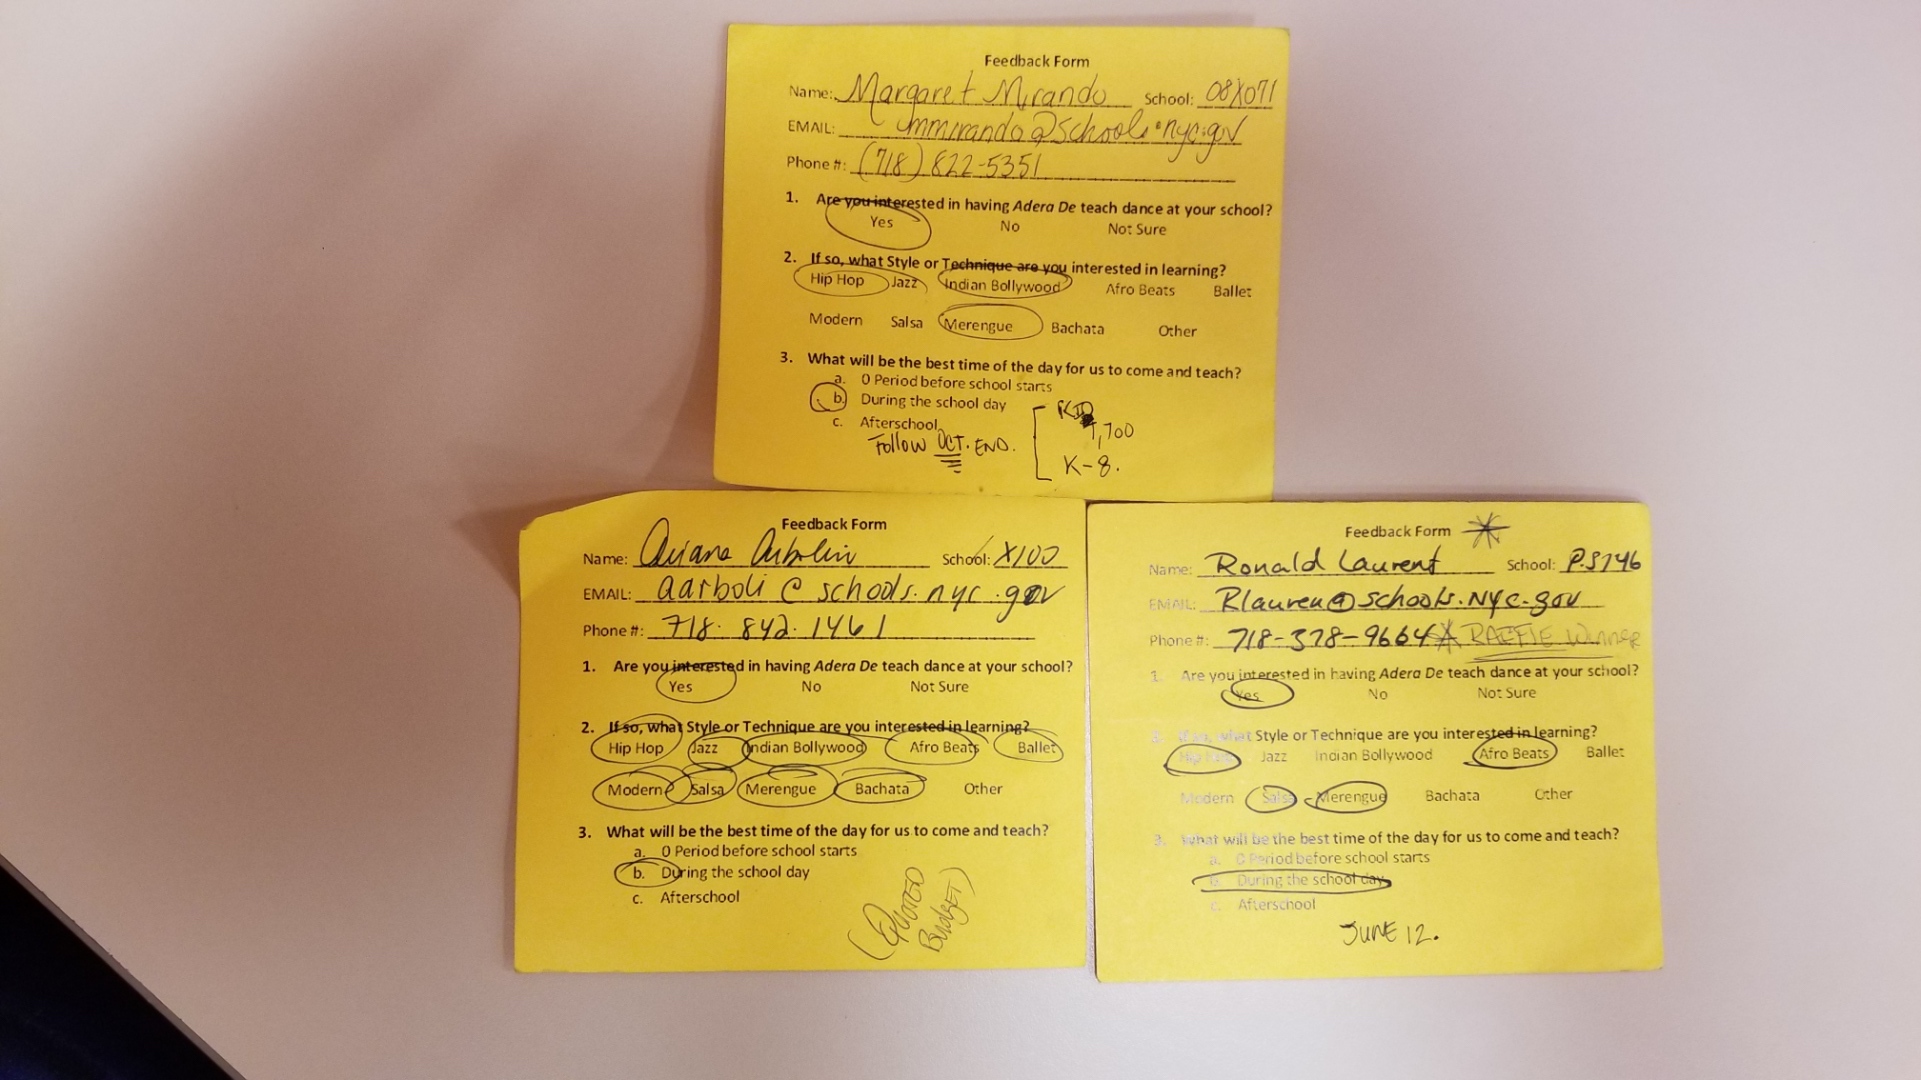 Feedback Form
Name: Margaret Mirando School: 08X071
EMAIL: mmirando@schools.nyc.gov
Phone #: (718) 822-5351
1. Are you interested in having Adera De teach dance at your school?
Yes No Not Sure
2. If so, what Style or Technique are you interested in learning?
Hip Hop Jazz Indian Bollywood Afro Beats Ballet
Modern Salsa Merengue Bachata Other
3. What will be the best time of the day for us to come and teach?
a. 0 Period before school starts
b. During the school day
c. Afterschool
Follow OCT. END.
1,700
K-8.
Feedback Form
Name: Ariana School: X100
EMAIL: aarboli@schools.nyc.gov
Phone #: 718. 842. 1461
1. Are you interested in having Adera De teach dance at your school?
Yes No Not Sure
2. If so, what Style or Technique are you interested in learning?
Hip Hop Jazz Indian Bollywood Afro Beats Ballet
Modern Salsa Merengue Bachata Other
3. What will be the best time of the day for us to come and teach?
a. 0 Period before school starts
b. During the school day
c. Afterschool
(QUOTED
BUDGET)
Feedback Form
Name: Ronald Laurent School: P.S146
EMAIL: Rlauren@schools.NYC.gov
Phone #: 718-378-9664 RAFFLE Winner
1. Are you interested in having Adera De teach dance at your school?
Yes No Not Sure
2. If so, what Style or Technique are you interested in learning?
Hip Hop Jazz Indian Bollywood Afro Beats Ballet
Modern Salsa Merengue Bachata Other
3. What will be the best time of the day for us to come and teach?
a. 0 Period before school starts
b. During the school day
c. Afterschool
JUNE 12.